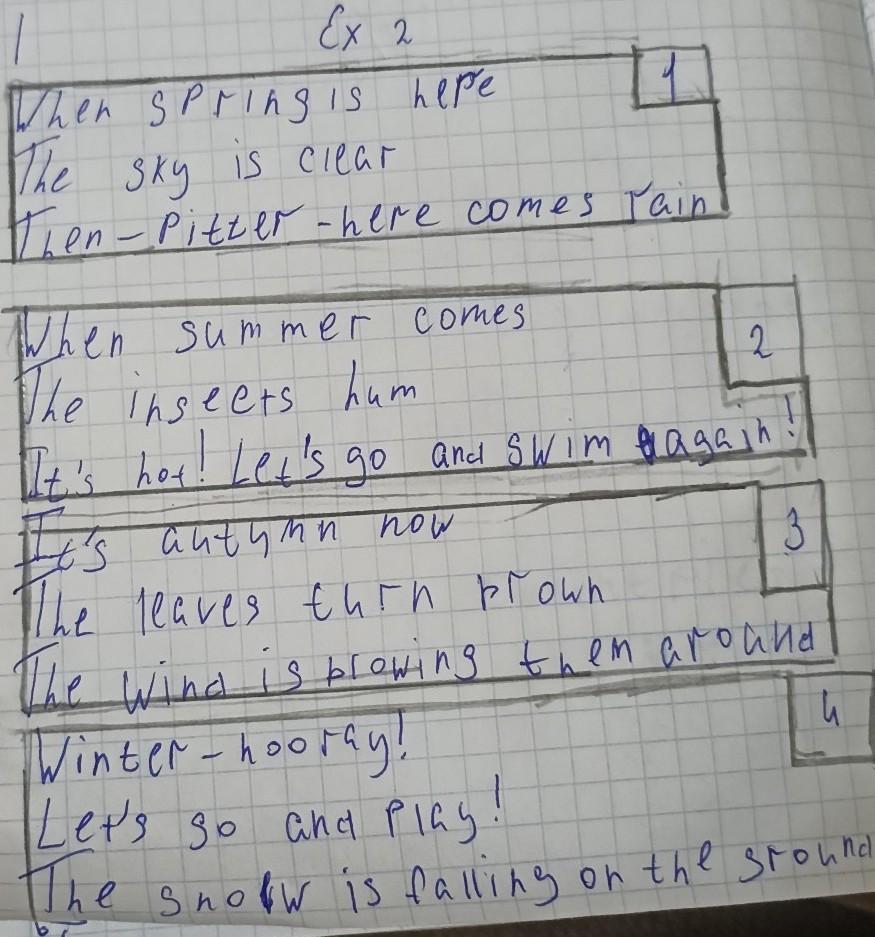 Ex 2
1
When spring is here
The sky is clear
Then - Pitter - here comes rain
2
When summer comes
The insects hum
It's hot! Let's go and swim again!
3
It's autymn now
The leaves turn brown
The wind is blowing them around
4
Winter - hooray!
Let's go and play!
The snow is falling on the ground